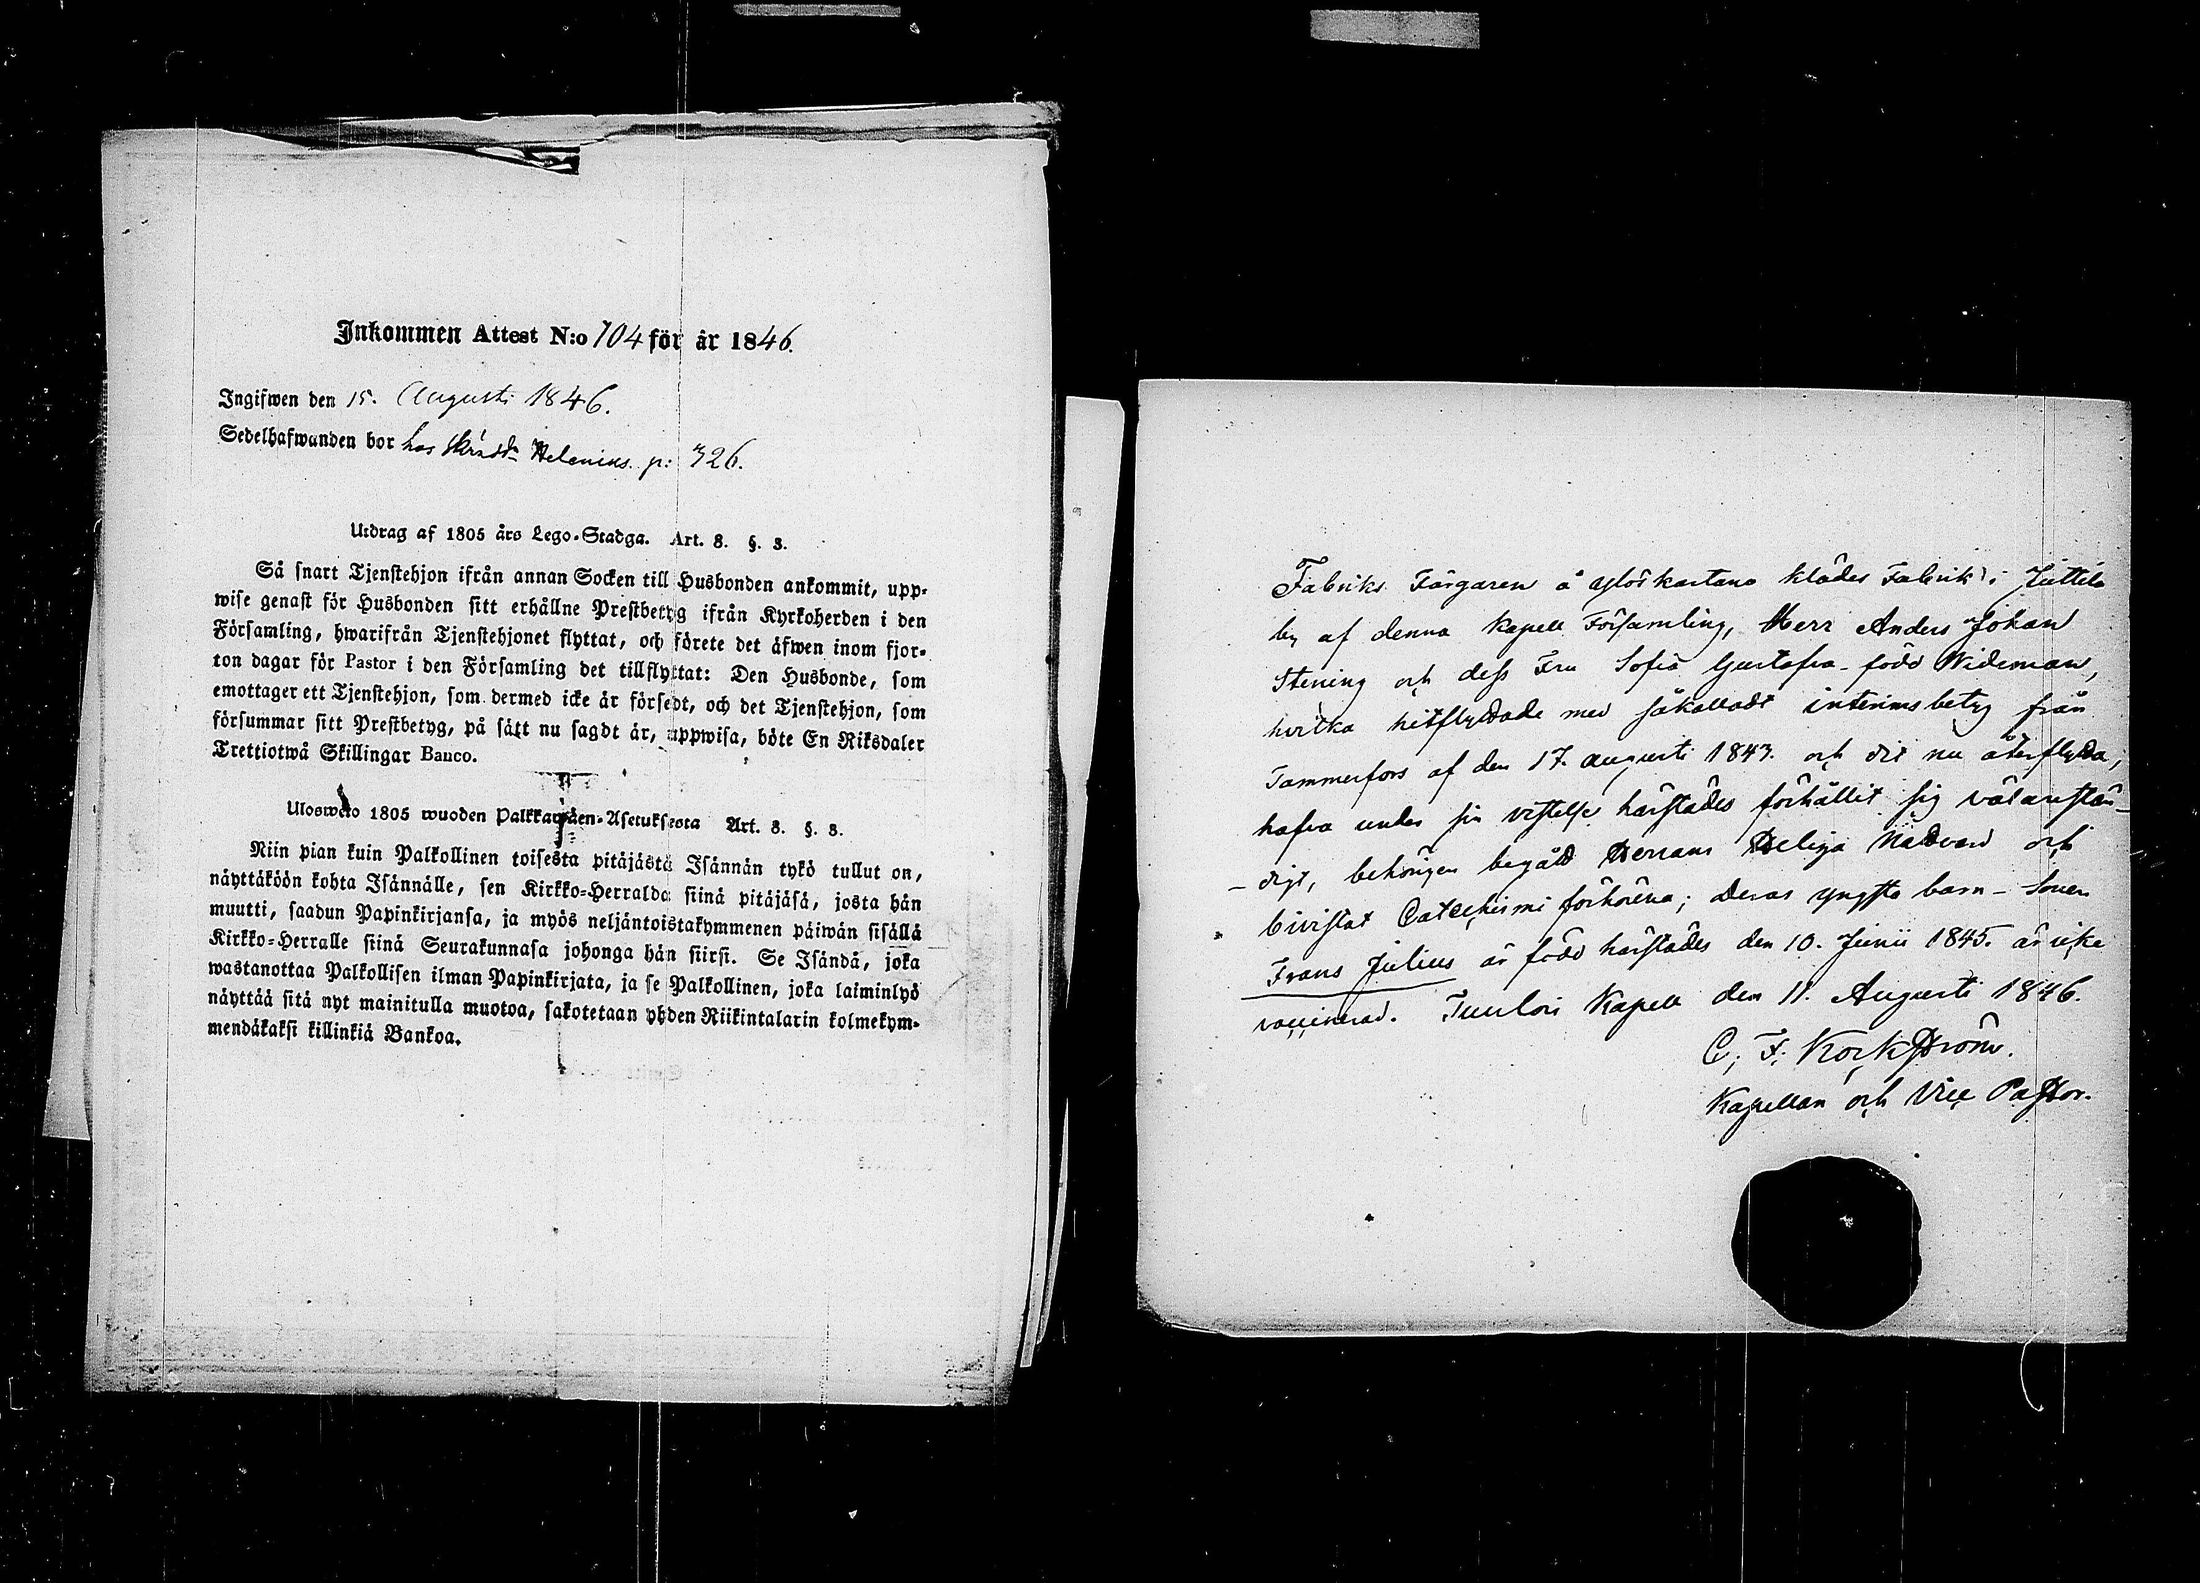 Inkommen Attest N:o 104 för år 1846.
Ingifwen den 15. Augusti 1846.
Sedelhafwanden bor hos Helenius. p: 326.
Utdrag af 1805 års Lego-Stadga. Art. 8. §. 3.
Så snart Tjenstehjon ifrån annan Socken till Husbonden ankommit, upp-
wise genast för Husbonden sitt erhållne Prestbetyg ifrån Kyrkoherden i den
Församling, hwarifrån Tjenstehjonet flyttat, och förete det äfwen inom fjor-
ton dagar för Pastor i den Församling det tillflyttat: Den Husbonde, som
emottager ett Tjenstehjon, som dermed icke är försedt, och det Tjenstehjon, som
försummar sitt Prestbetyg, på sätt nu sagdt är, uppwisa, böte En Riksdaler
Trettiotwå Skillingar Banco.
Ulosweto 1805 wuoden Palkkawäen-Asetuksesta Art. 8. §. 3.
Niin pian kuin Palkollinen toisesta pitäjästä Isännän tykö tullut on,
näyttäköön kohta Isännälle, sen Kirkko-Herralda siinä pitäjäsä, josta hän
muutti, saadun Papinkirjansa, ja myös neljäntoistakymmenen päiwän sisällä
Kirkko-Herralle siinä Seurakunnasa johonga hän siirsi. Se Isändä, joka
wastanottaa Palkollisen ilman Papinkirjata, ja se Palkollinen, joka laiminlyö
näyttää sitä nyt mainitulla muotoa, sakotetaan yhden Riikintalarin kolmekym-
mendäkaksi killinkiä Bankoa.
Fabriks Färgaren å klädes Fabrik i Juttila
by af denna Kapell Församling, Herr Anders Johan
Stening och dess Fru Sofia Gustafva född Wideman,
hvilka hitflyttade med såkalladt interimsbetyg från
Tammerfors af den 17. augusti 1843. och dit nu återflytta,
hafva under sin vistelse härstädes förhållit sig välanstän-
- digt, behörigen begått Herrans Heliga Nattvard och
bivistat Catechismi förhören; Deras yngsta barn - Sonen
Frans Julius är född härstädes den 10. Junii 1845. är icke
vaccinerad. Tuulois Kapell den 11. Augusti 1846.
C. F. Korkström.
Kapellan och Vice Pastor.